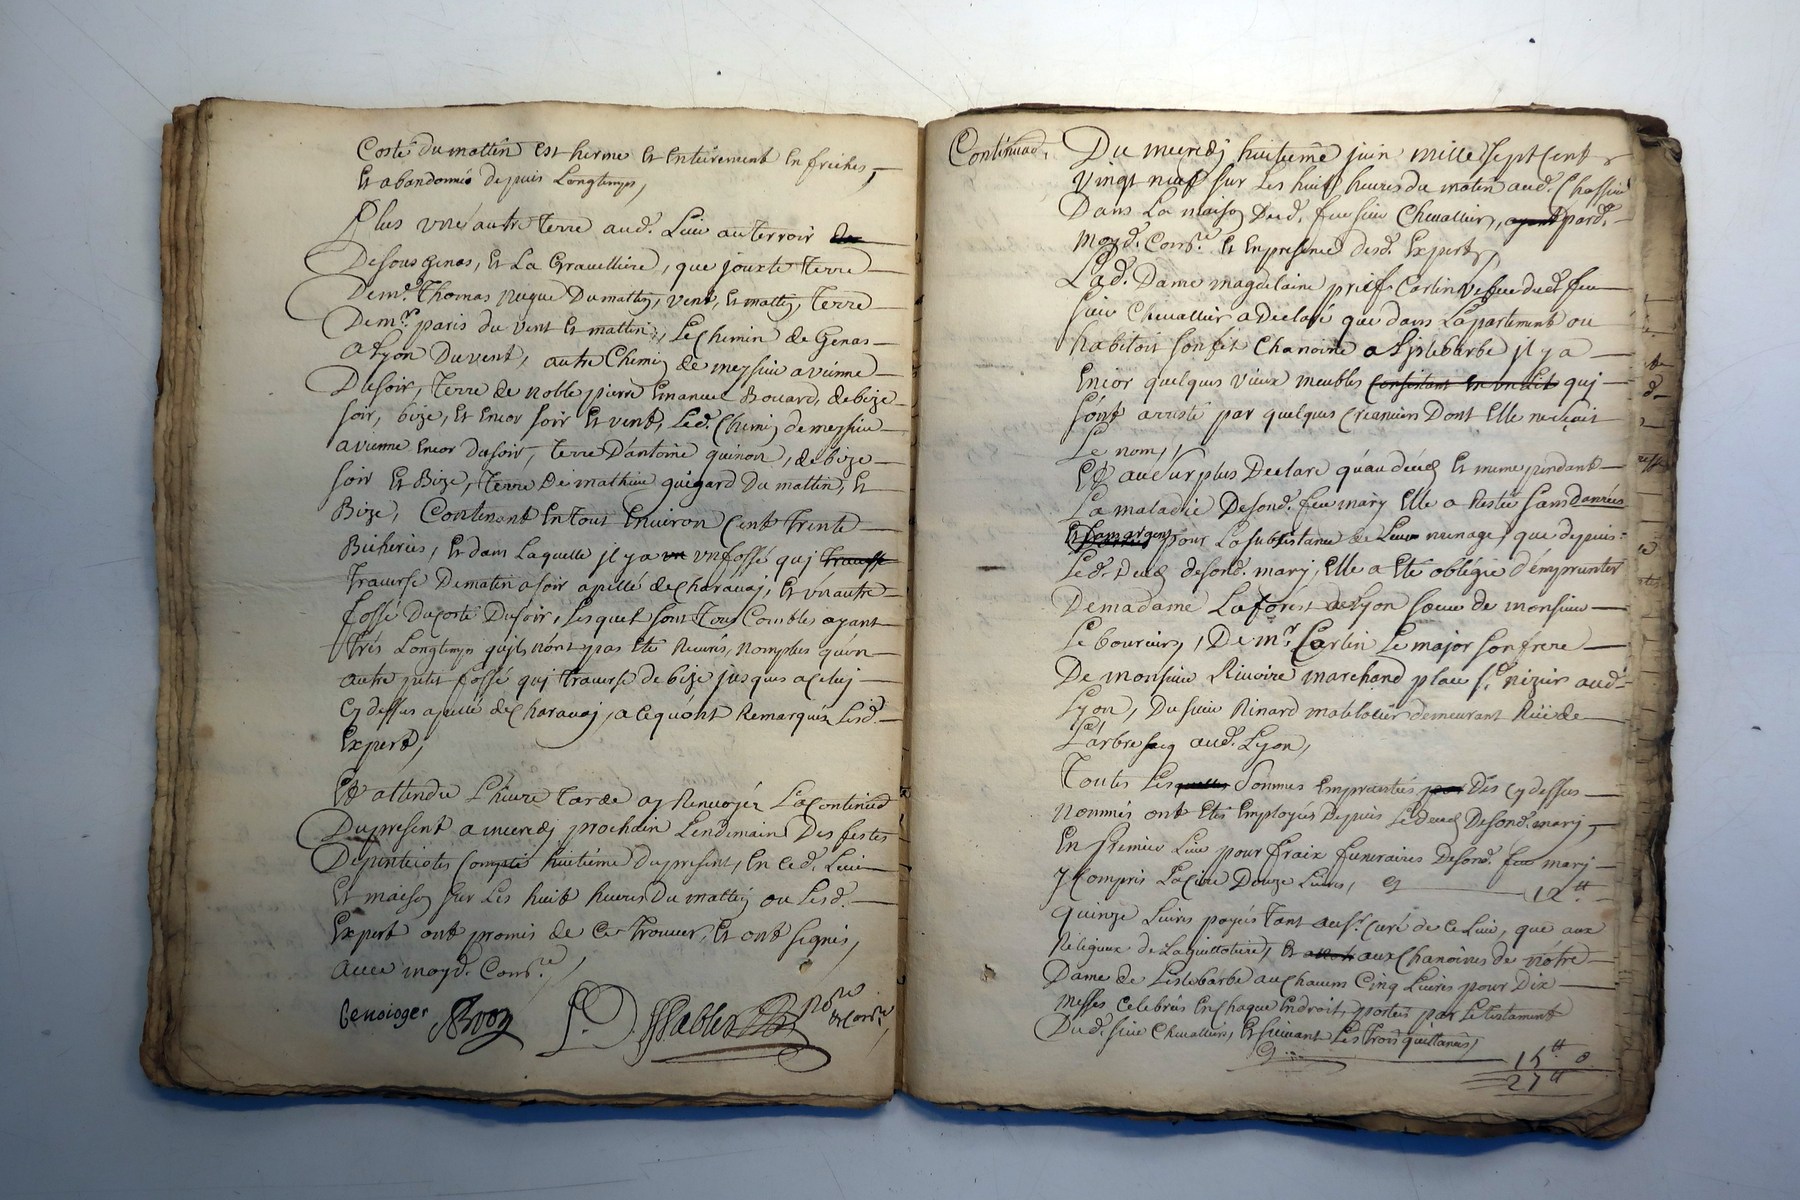 Costé du mattin est herme et entierement en friches,
et abandonnés depuis Longtemps,
Plus une autre terre aud. Lieu au terroir de
Desous genas, et La Gravelliere, que jouxte terre
De mr. Thomas Du mattin, vent, et mattin, terre
De mr. paris du vent et mattin, Le Chemin de Genas
a Lyon Du vent, autre Chemin de meyssieu a vienne
Du soir, terre de noble pierre Emanuel Bouard, de bize
soir, bize, et encor soir et vent, Led. Chemin de meyssieu
a vienne encor du soir, terre D'antoine quinon, de bize
soir et Bize, terre De mathieu guigard Du mattin, et
Bize, Contenant en tout Environ Cent trente
Bicherées, et dans Laquelle il y a un un fossé qui traverse
traverse De matin a soir apellé de Charavaj, et un autre
fossé Du costé Du soir, Lesquel sont tous Combles ayant
trés Longtemps qu'ils n'ont pas été Recurés, nomplus qu'un
autre petit fossé qui traverse de bize jusques a celuj
Cy dessus apellé de Charavaj, a ce qu'ont Remarqués Lesd.
Expert,
Et attendu L'heure tarde a Renvoyér La Continuaõn
Du present a mercredj prochain Lendemain Des festes
De pentecotes Compté huitiéme du present, En ced. Lieu
Et maison sur Les huit heures Du mattin ou Lesd.
Expert ont promis de Ce trouver, et ont signés,
avec moyd. Comre.
Genoioger
Continuaõn
Du mercredj huitieme juin mille sept Cent
vingt neuf sur Les huit heures du matin aud. Chassieu
Dans La maison Dud. feu sieur Chevallier, pard.
moyd. Comre. et En presence desd. Expert,
Lad. Dame magdelaine prost Carlin vefve dud. feu
sieur Chevallier a Declaré que dans L'apartement ou
habitoit son fils Chanoine a L'islebarbe il y a
Encor quelques vieux meubles Consistant En un Lit qui
sont arresté par quelques Creanciers Dont Elle ne sçait
Le nom,
Et au surplus Declare qu'au décés et meme pendant
La maladie De sond. feu mary Elle a Restée sans danrées
et sans argent pour La subsistance de Leur menage, que depuis
Led. Decés de sond. mary, Elle a Eté obligée d'emprunter
De madame Laforest de Lyon sœur de monsieur
Le bourcier, De mr. Carlin Le major son frere
De monsieur Rivoire marchand place st. nizier aud.
Lyon, Du sieur Rinard matelatier demeurant Rüe de
L'arbre secq aud. Lyon,
Toutes Lesquelles Sommes Empruntées par Des cy dessus
nommés ont Etés Employés Depuis Le decés De sond. mary,
En Premier Lieu pour fraix funeraires De sond. feu mary
y Compris La Cire Douze Livres, Cy 12.tt
quinze Livres payées tant au sr. Curé de Ce Lieu, que aux
Religieux de La guillotiere, et aux Chanoines de nôtre
Dame de L'islebarbe a Chacuns Cinq Livres pour Dix
messes Celebrés En Chaque Endroit, portées par Le testament
Dud. sieur Chevallier, et suivant Les trois quittances,
Cy 15tt 0
27tt